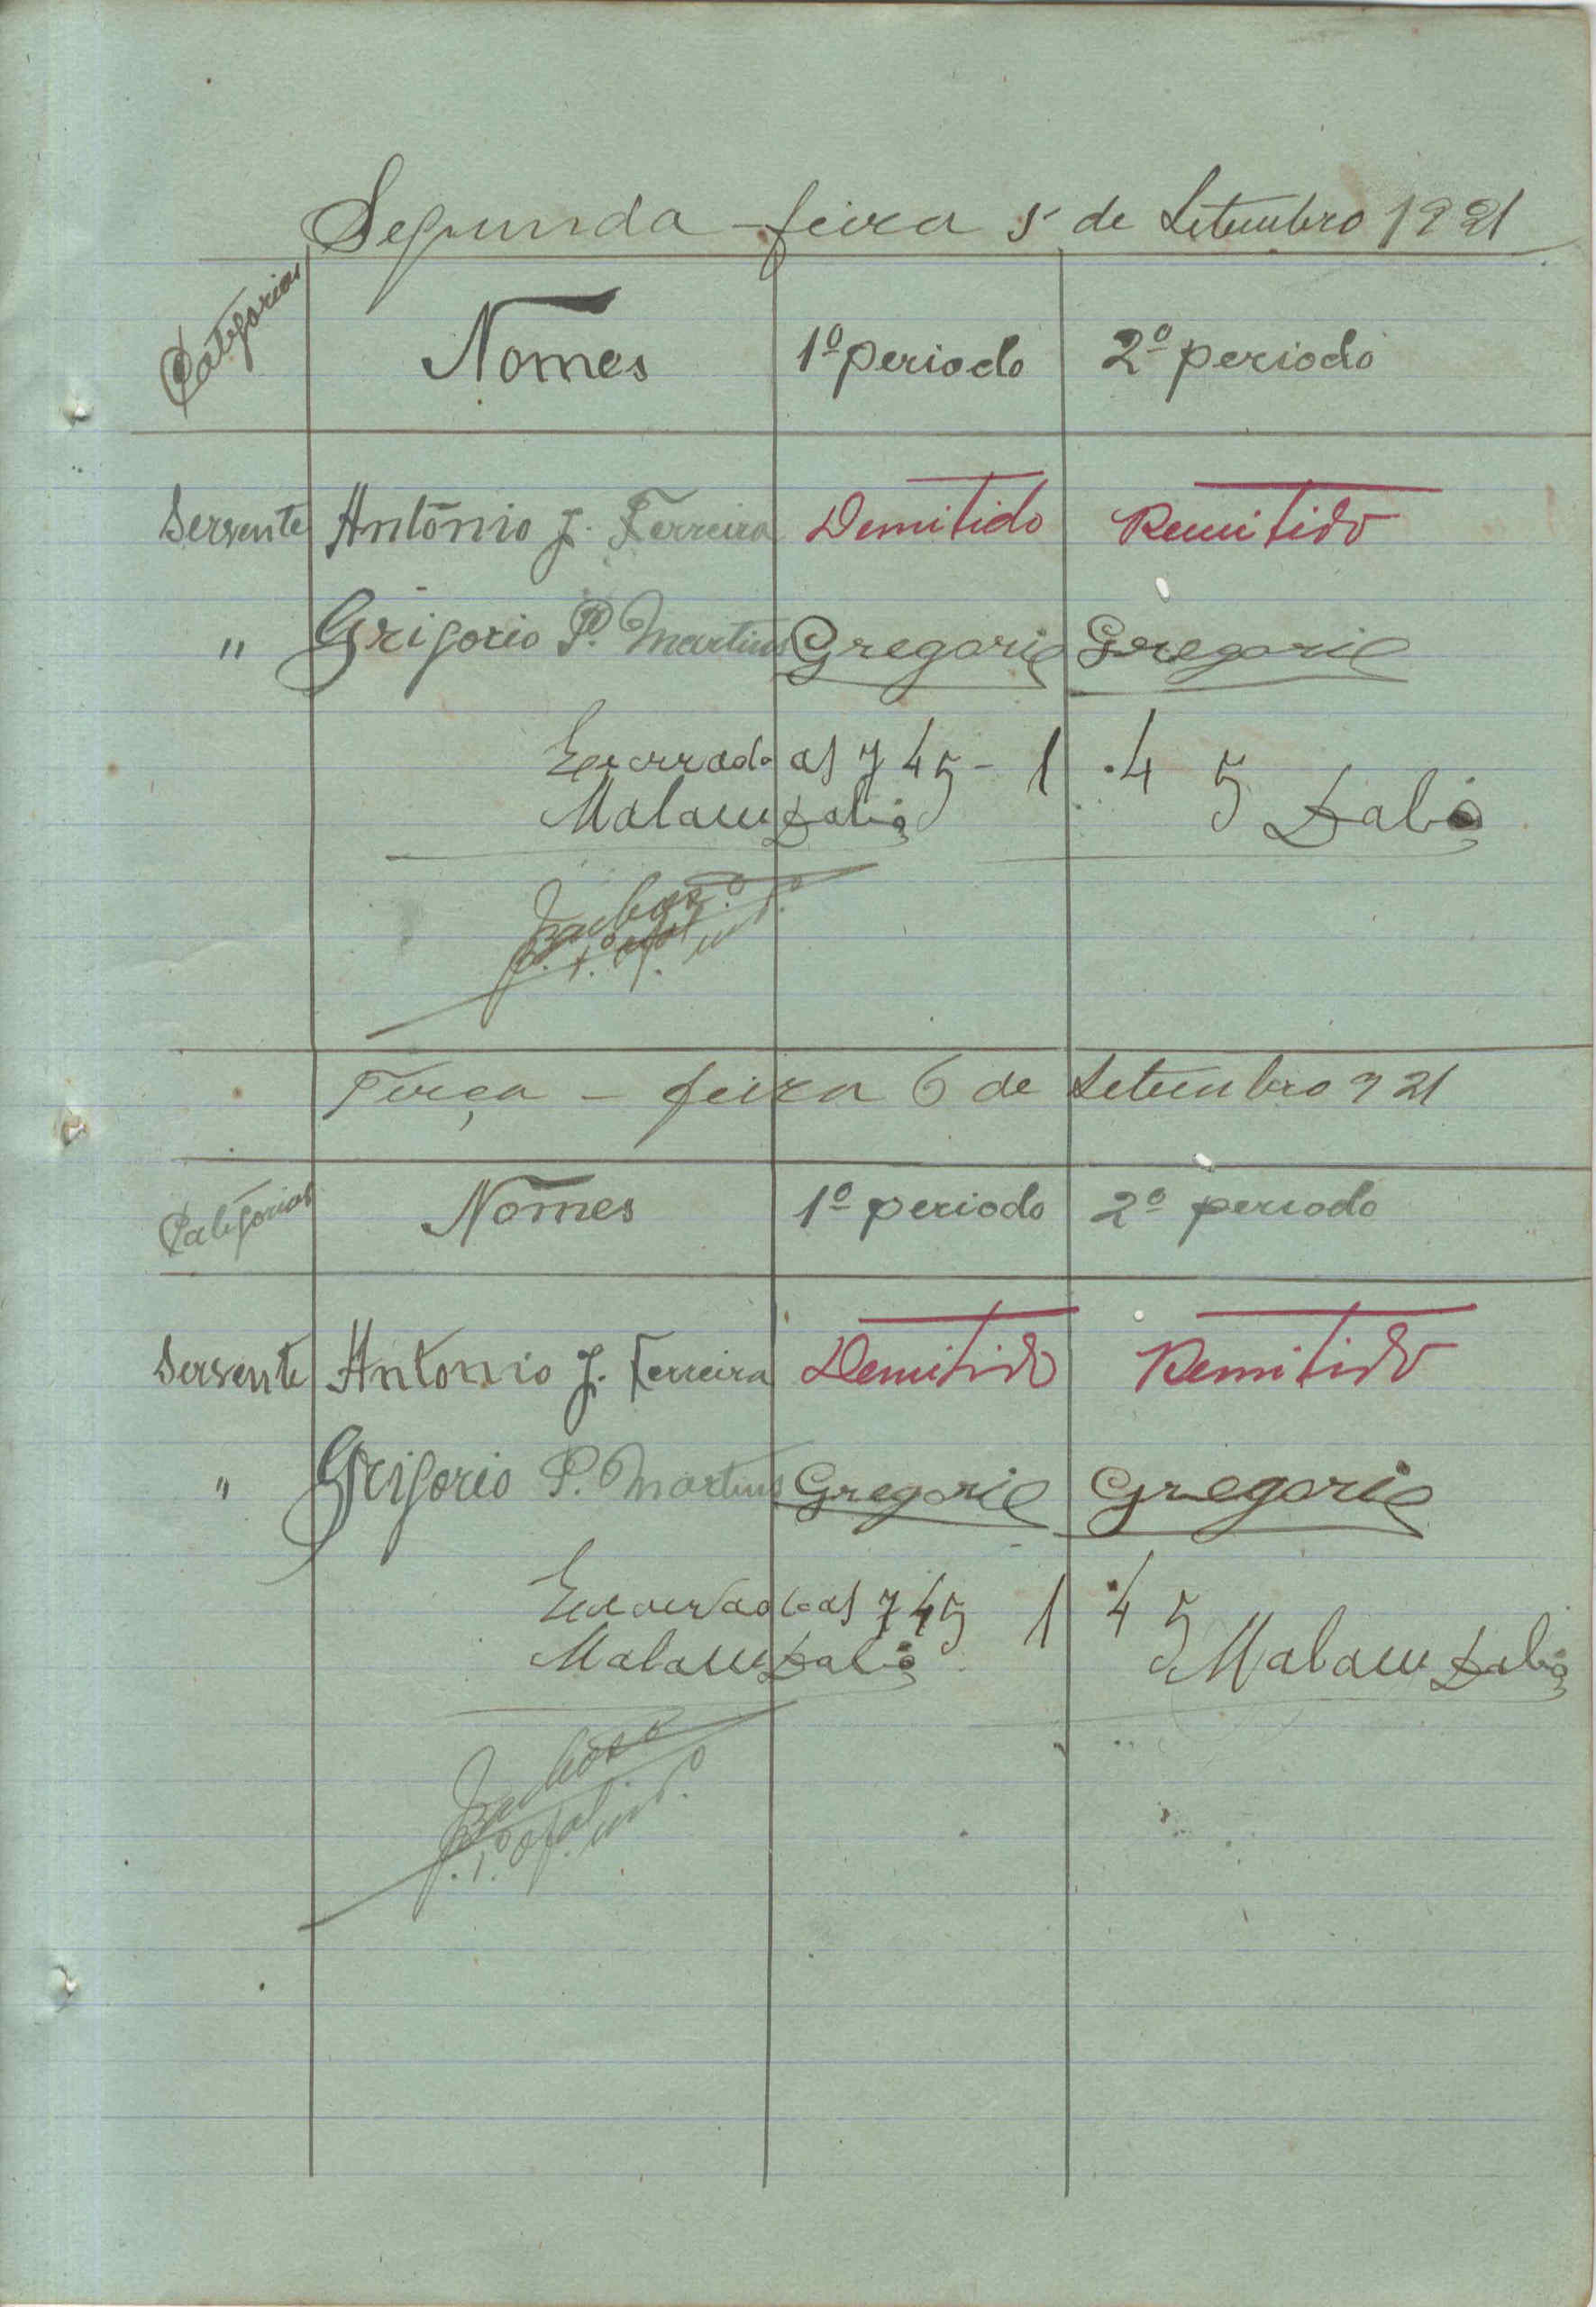 Segunda - feira 5 de Setembro 1921
Categorias Nomes 1º periodo 2º periodo
Servente António J. Ferreira Demitido Demitido
" Grigorio P. Martins Gregorio Gregorio
Encerrado as 7 45 - 1 .4 5
Malam Dabó Dabó
Terça - feira 6 de Setembro 921
Categorias Nomes 1º periodo 2º periodo
Servente Antonio J. Ferreira Demitido Demitido
" Grigorio P. Martins Gregorio Gregorio
Encerrado as 7 45 1 4 5
Malam Dabó Malam Dabó